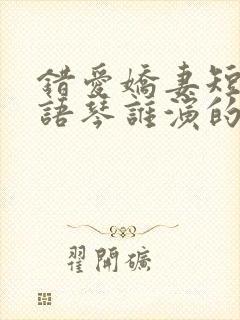 錯愛嬌妻短
語琴誰演的
翟開礦